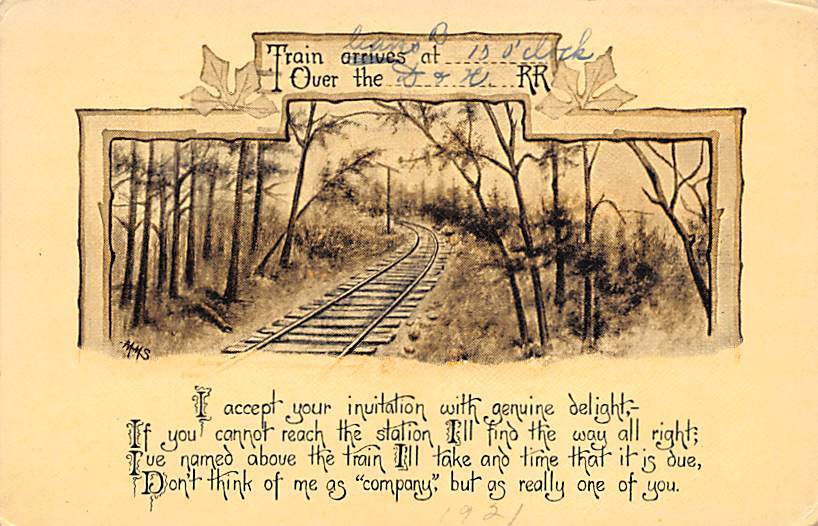 Train arrives at 10 o'clock
Over the D & H RR
MMS
I accept your invitation with genuine delight,-
If you cannot reach the station I'll find the way all right;
I've named above the train I'll take and time that it is due,
Don't think of me as "company", but as really one of you.
1921